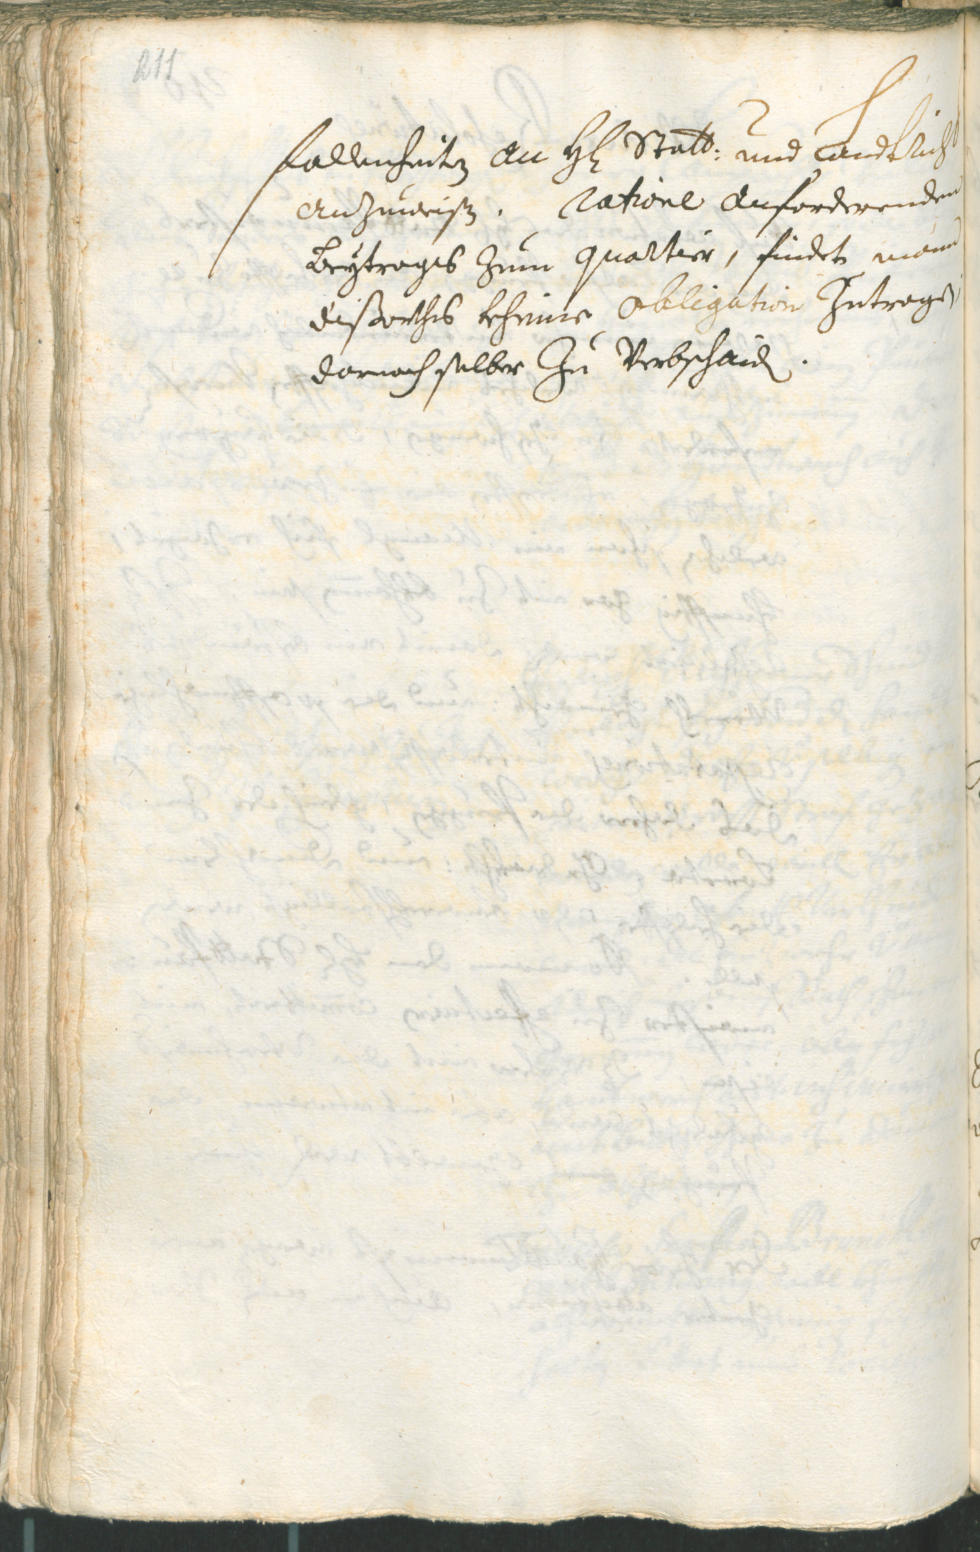 211
fallenheiten an H: Statt: und Landtricht
anzuweisen. Ratione anforderenden
Beytrages zum quartier, findet mann
dißorths kheine obligation Zutragen
darnach selber Zu Verbschaiden.